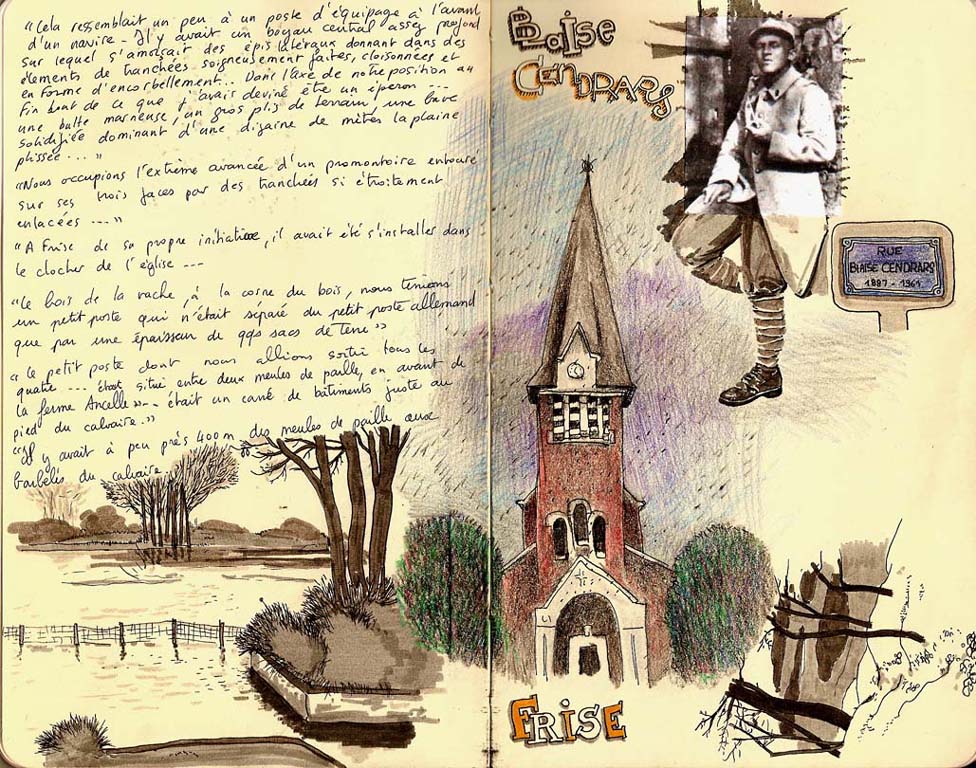 "Cela ressemblait un peu à un poste d'équipage à l'avant
d'un navire - Il y avait un boyau central assez profond
sur lequel s'amorçait des épis latéraux donnant dans des
éléments de tranchées soigneusement faites, cloisonnées et
en forme d'encorbellement... Donc l'axe de notre position au
fin bout de ce que j'avais deviné être un éperon ...
une butte marneuse, un gros plis de terrain, une lave
solidifiée dominant d'une dizaine de mètres la plaine
plissée ..."
"Nous occupions l'extrême avancée d'un promontoire entouré
sur ses trois faces par des tranchées si étroitement
enlacées ---"
"A Frise de sa propre initiative, il avait été s'installer dans
le clocher de l'église ---
"Le bois de la vache, à la corne du bois, nous tenions
un petit poste qui n'était séparé du petit poste allemand
que par une épaisseur de qqs sacs de terre"
"Le petit poste dont nous allions sortir tous les
quatre --- était situé entre deux meules de paille, en avant de
la ferme Ancelle"-- était un carré de bâtiments juste au
pied du calvaire.."
"Il y avait à peu près 400m des meules de paille aux
barbelés du calvaire
Blaise
Cendrars
RUE
BLAISE CENDRARS
1887 - 1961
FRISE